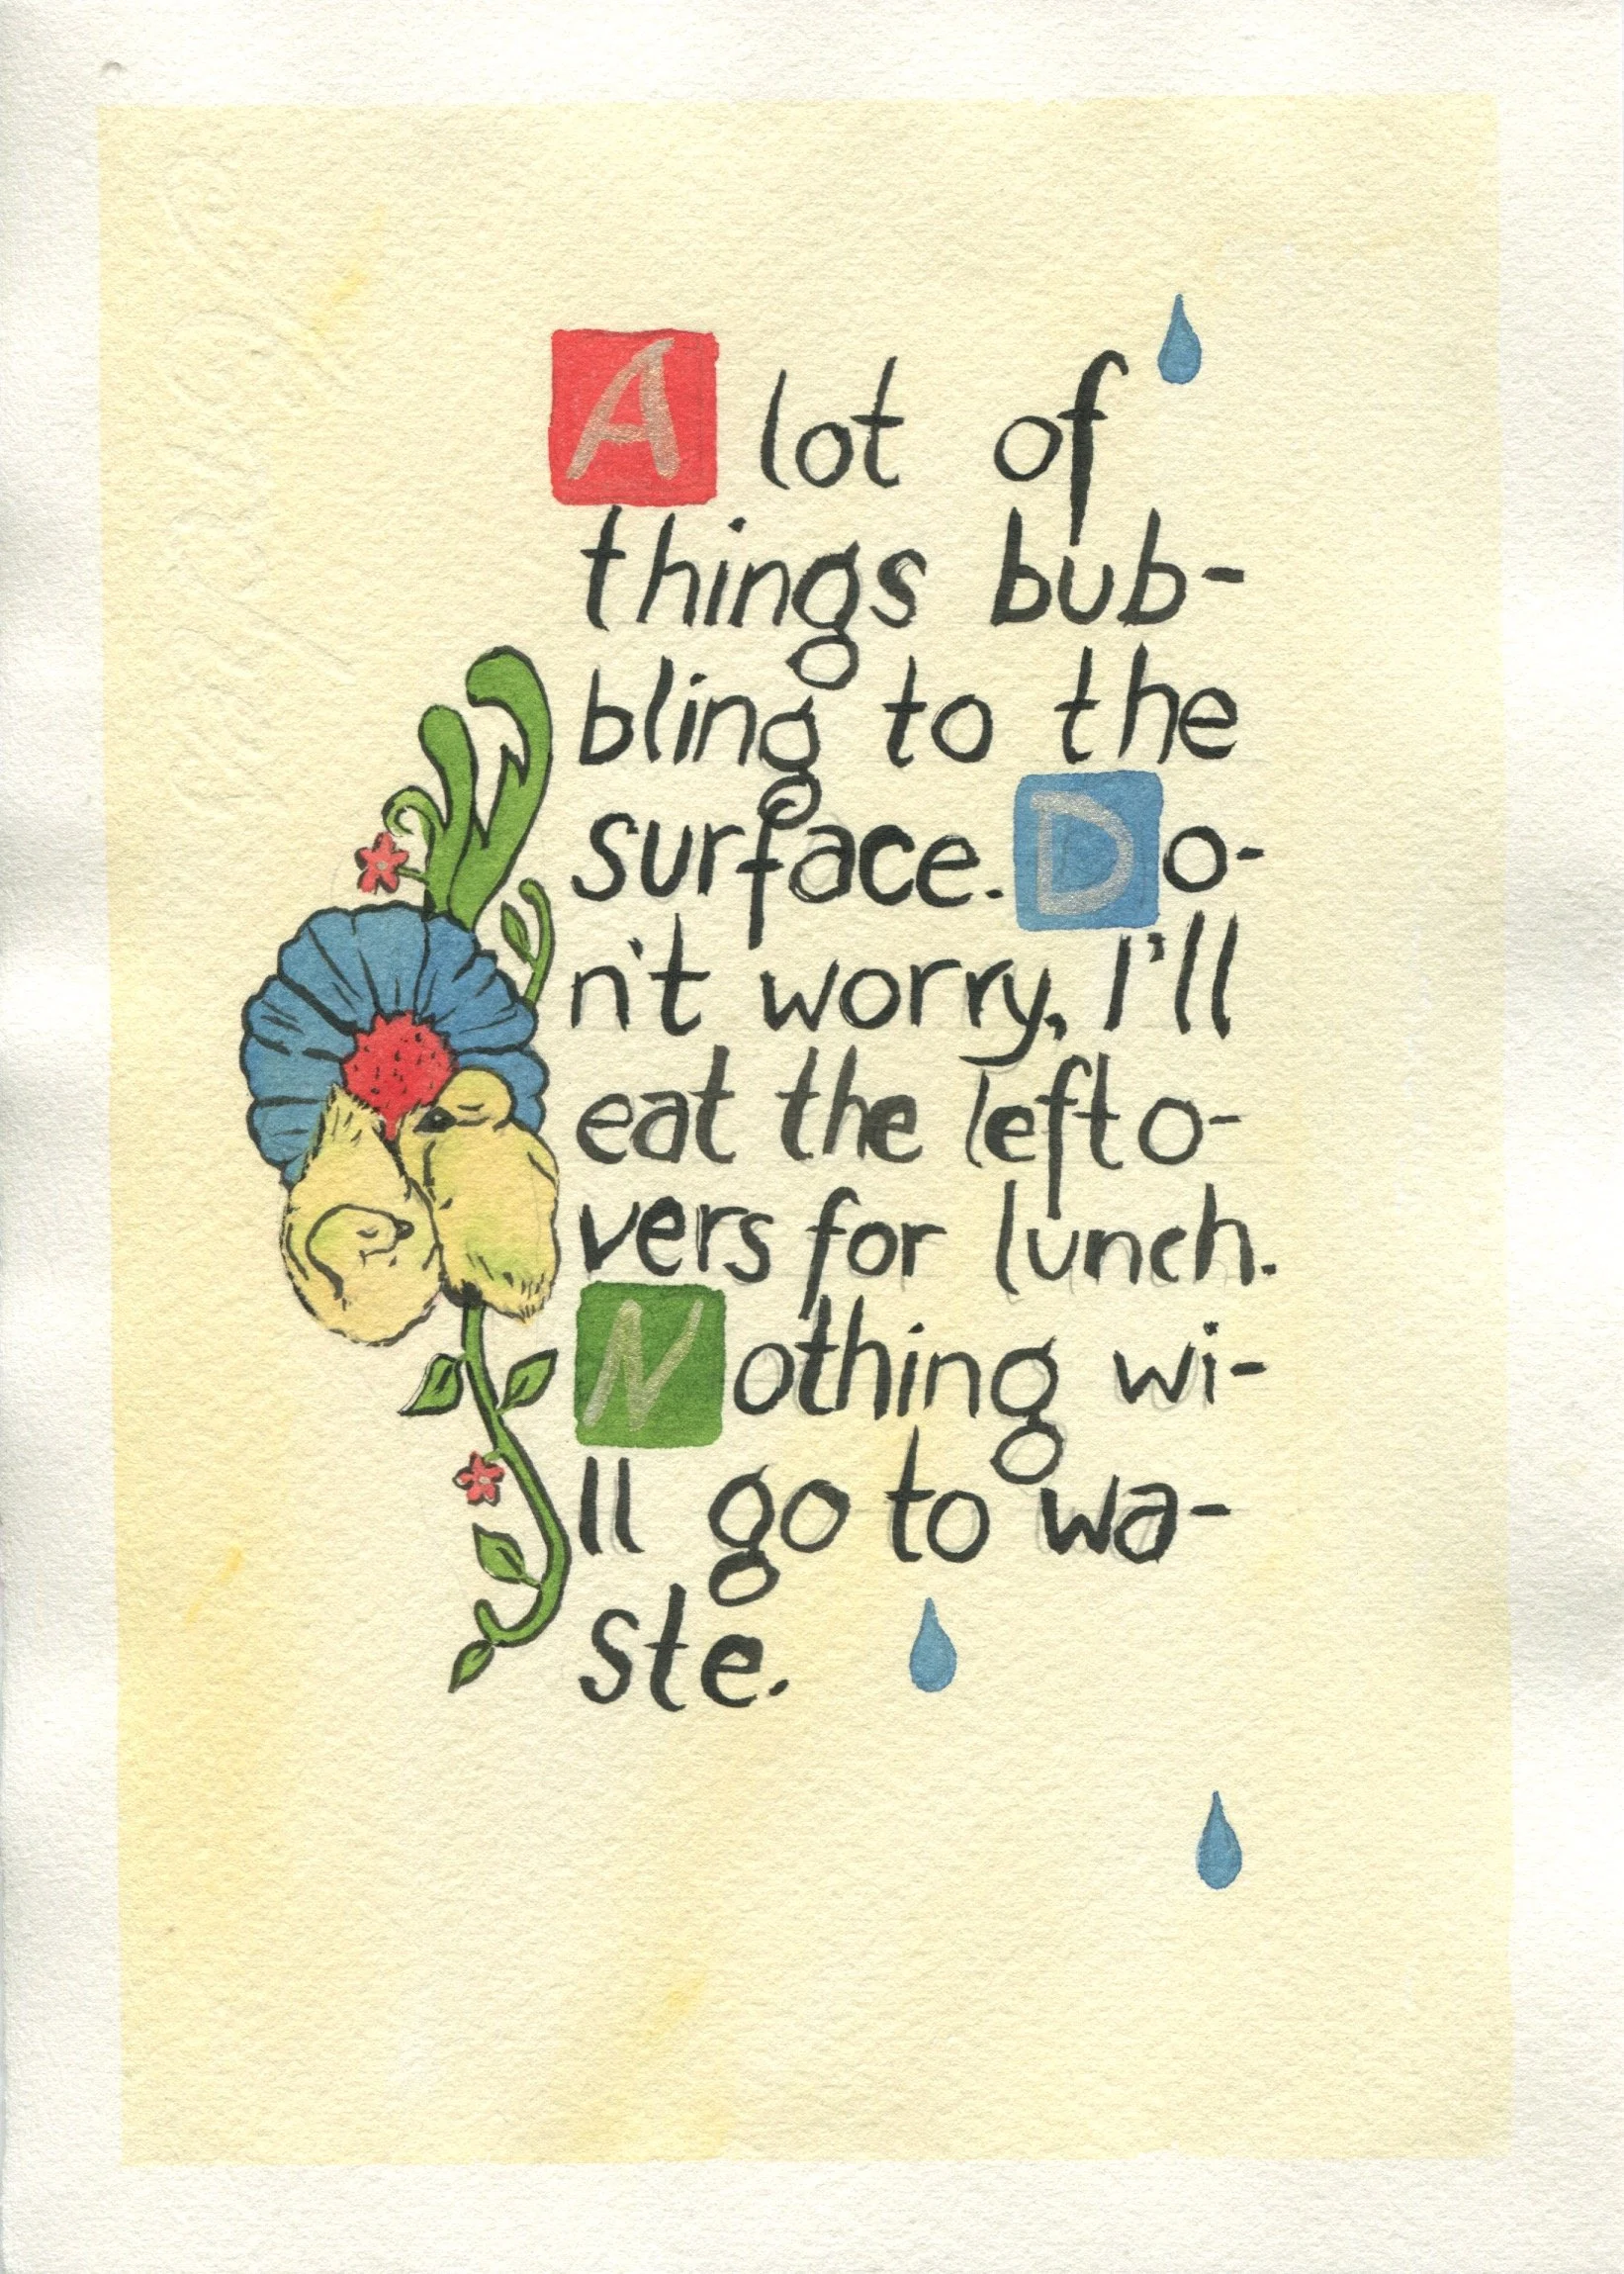 A lot of
things bub-
bling to the
surface. Do-
n't worry, I'll
eat the lefto-
vers for lunch.
Nothing wi-
ll go to wa-
ste.